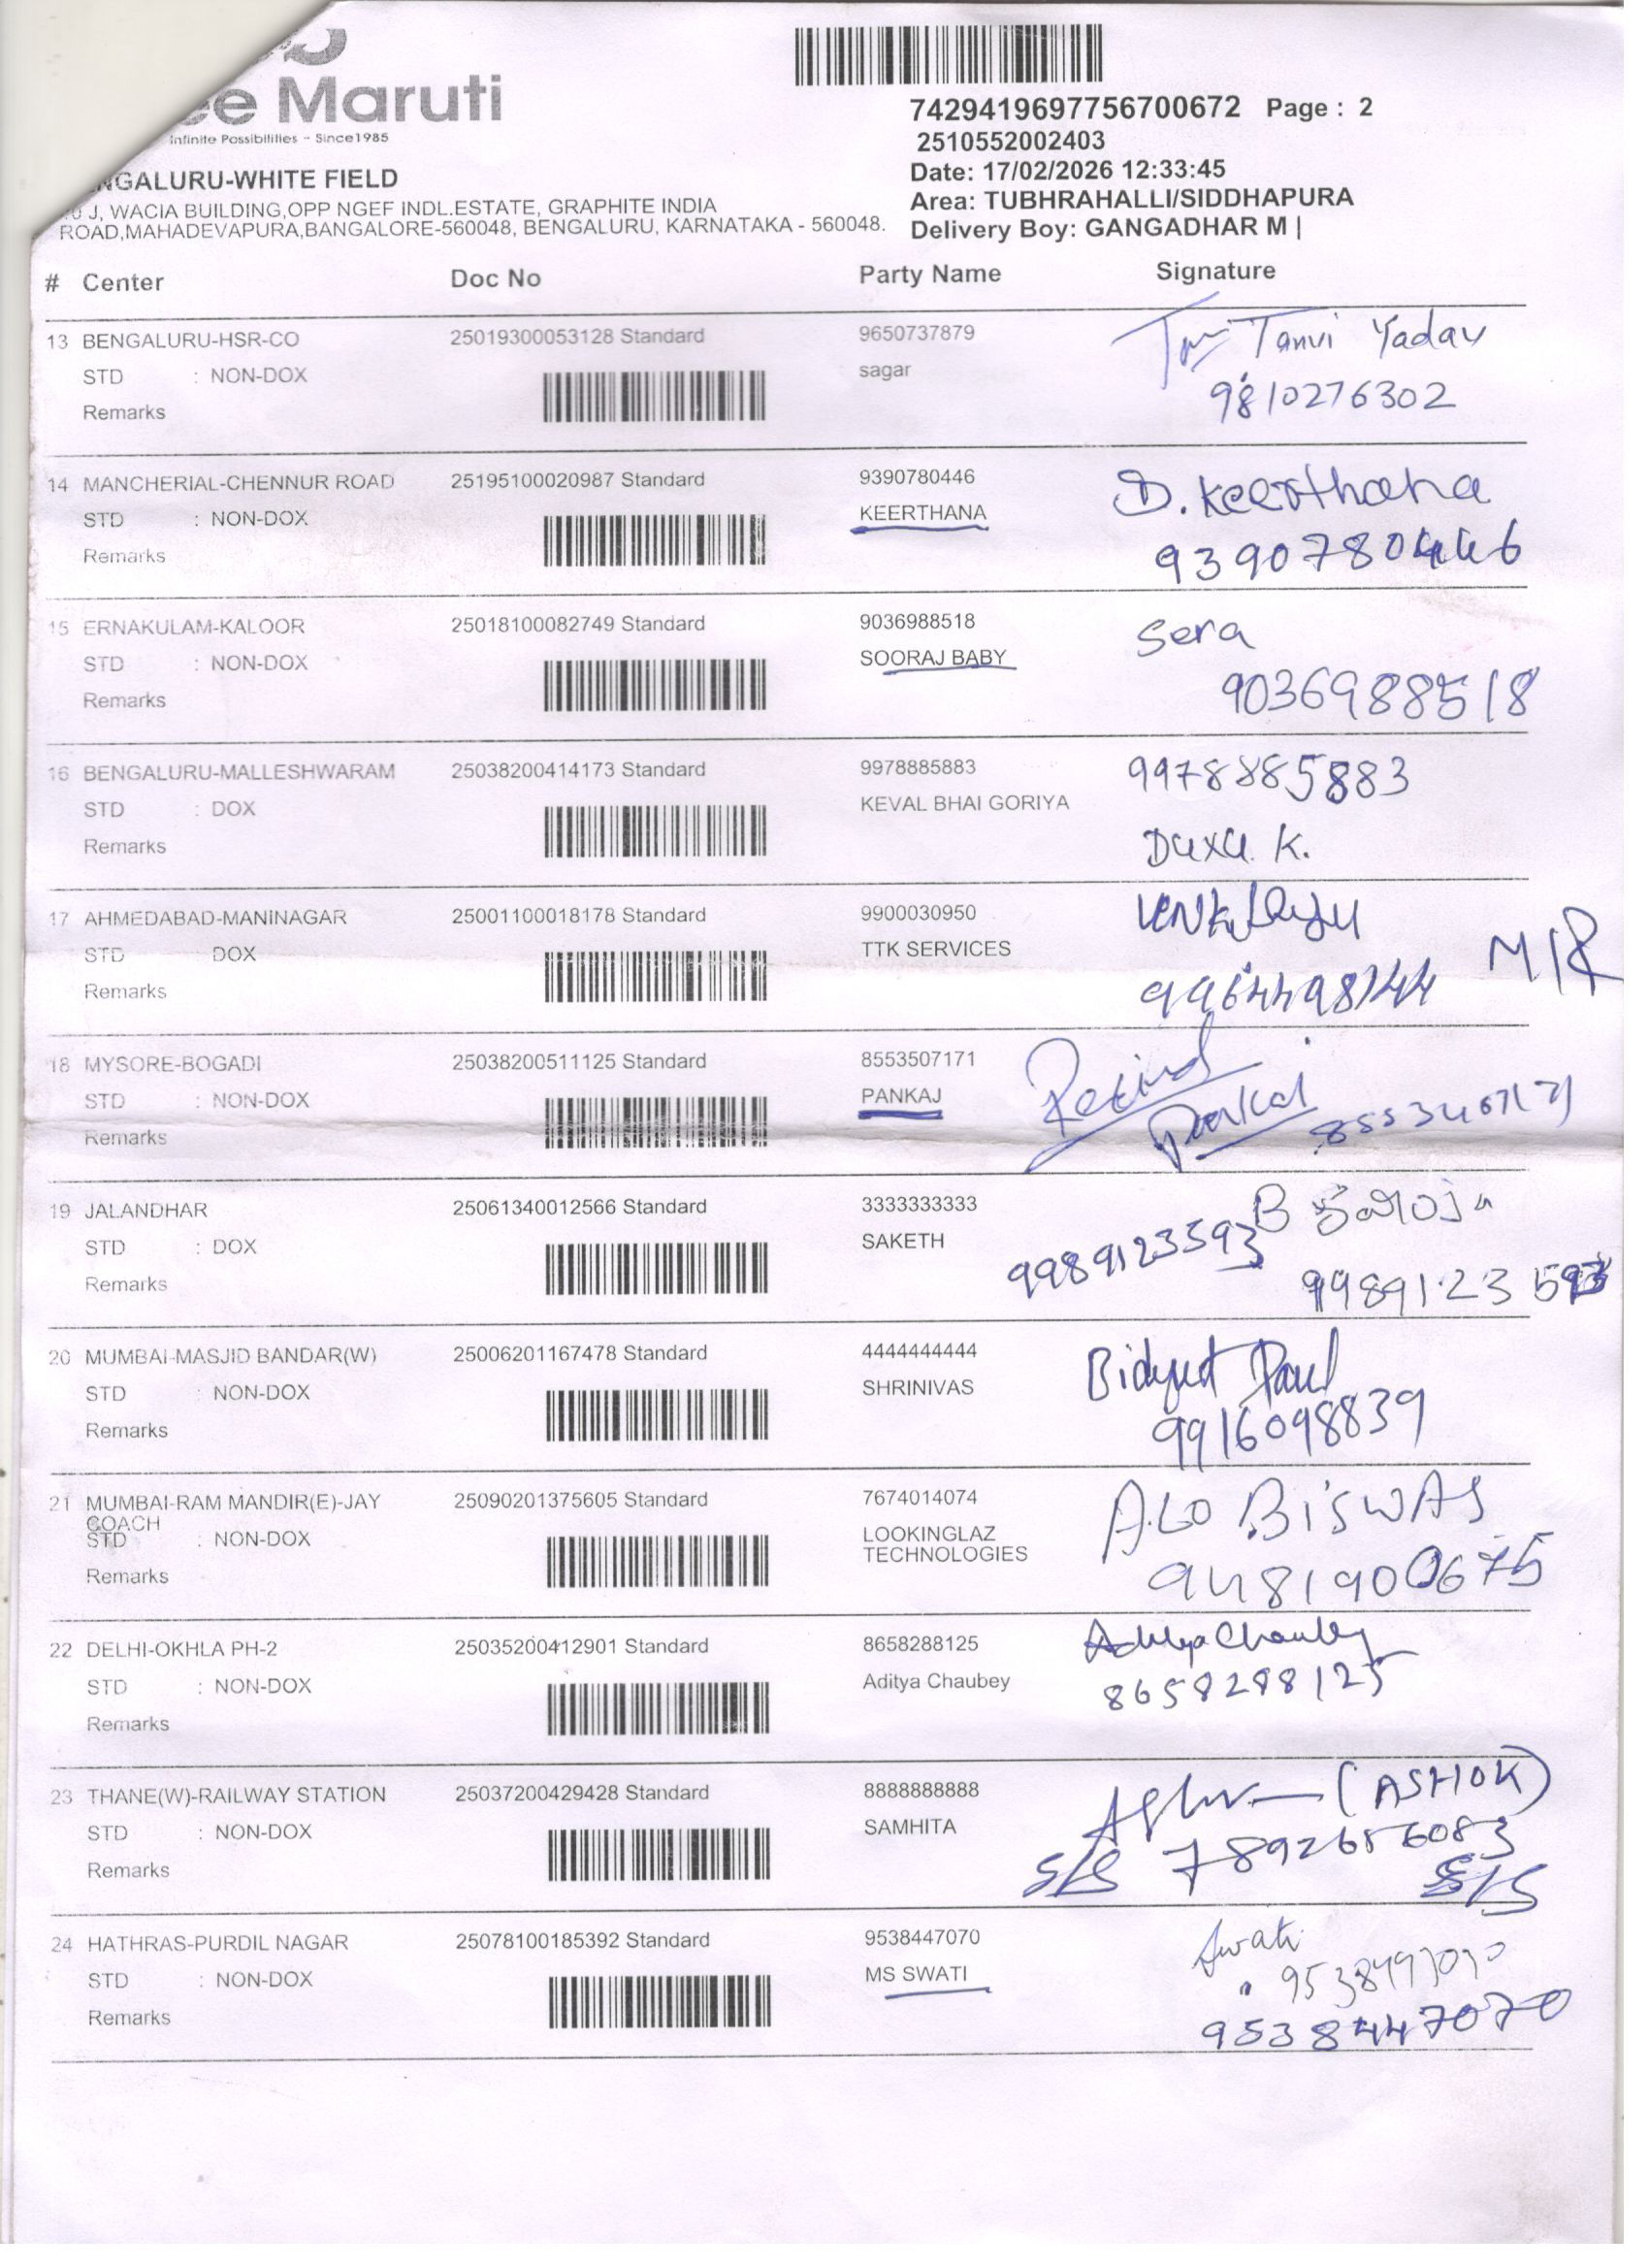 ee Maruti
Infinite Possibilities - Since1985
7429419697756700672 Page : 2
2510552002403
Date: 17/02/2026 12:33:45
Area: TUBHRAHALLI/SIDDHAPURA
Delivery Boy: GANGADHAR M |
NGALURU-WHITE FIELD
J, WACIA BUILDING,OPP NGEF INDL.ESTATE, GRAPHITE INDIA
ROAD,MAHADEVAPURA,BANGALORE-560048, BENGALURU, KARNATAKA - 560048.
# Center Doc No Party Name Signature
13 BENGALURU-HSR-CO 25019300053128 Standard 9650737879 Tanvi Yadav
STD : NON-DOX sagar 9810276302
Remarks
14 MANCHERIAL-CHENNUR ROAD 25195100020987 Standard 9390780446 D. Keerthana
STD : NON-DOX KEERTHANA 9390780446
Remarks
15 ERNAKULAM-KALOOR 25018100082749 Standard 9036988518 Sera
STD : NON-DOX SOORAJ BABY 9036988518
Remarks
16 BENGALURU-MALLESHWARAM 25038200414173 Standard 9978885883 9978885883
STD : DOX KEVAL BHAI GORIYA
Remarks Daxa K.
17 AHMEDABAD-MANINAGAR 25001100018178 Standard 9900030950
STD DOX TTK SERVICES M/R
Remarks 9964498744
18 MYSORE-BOGADI 25038200511125 Standard 8553507171
STD : NON-DOX PANKAJ Pankaj
Remarks
19 JALANDHAR 25061340012566 Standard 3333333333 B Saroja
STD : DOX SAKETH 9989123593
Remarks 9989123593
20 MUMBAI-MASJID BANDAR(W) 25006201167478 Standard 4444444444 Bidyut Paul
STD NON-DOX SHRINIVAS 9916098839
Remarks
21 MUMBAI-RAM MANDIR(E)-JAY 25090201375605 Standard 7674014074 ALO BISWAS
COACH
STD : NON-DOX LOOKINGLAZ
TECHNOLOGIES
Remarks 9481900675
22 DELHI-OKHLA PH-2 25035200412901 Standard 8658288125 Aditya Chaubey
STD : NON-DOX Aditya Chaubey 8658288125
Remarks
23 THANE(W)-RAILWAY STATION 25037200429428 Standard 8888888888 (ASHOK)
STD : NON-DOX SAMHITA 7892656083
Remarks S/S S/S
24 HATHRAS-PURDIL NAGAR 25078100185392 Standard 9538447070 Swati
STD : NON-DOX MS SWATI
Remarks 9538447070